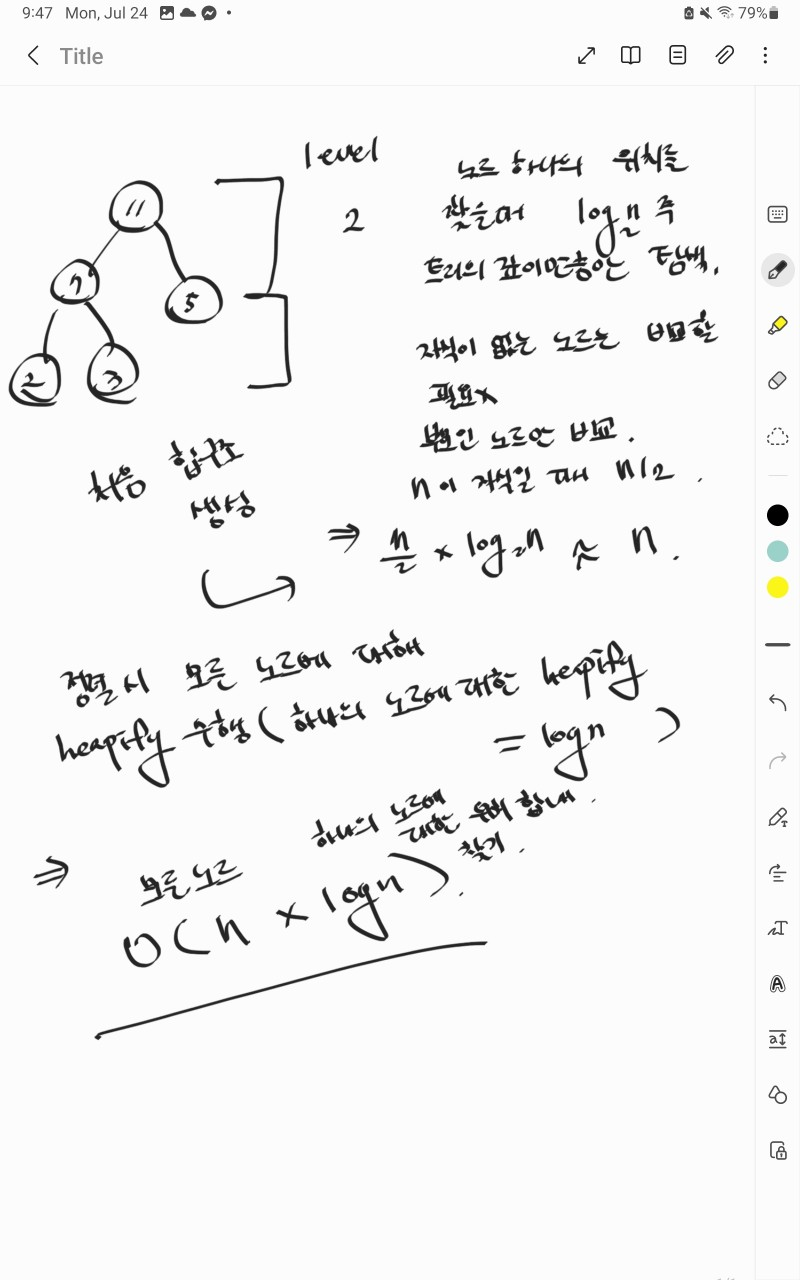 9:47 Mon, Jul 24 79%
Title
level
2
11
7
5
2
3
노드 하나의 위치를
찾을때 log₂n 즉
트리의 깊이만큼만 탐색.
자식이 없는 노드는 비교할
필요x
부모인 노드만 비교.
n이 자식일 때 n/2.
처음 힙구조
생성
⇒ n/2 × log₂n ≈ n.
정렬시 모든 노드에 대해
heapify 수행 (하나의 노드에 대한 heapify
= logn )
하나의 노드에
대한 위치
찾기.
⇒ 모든 노드
O(n × logn).